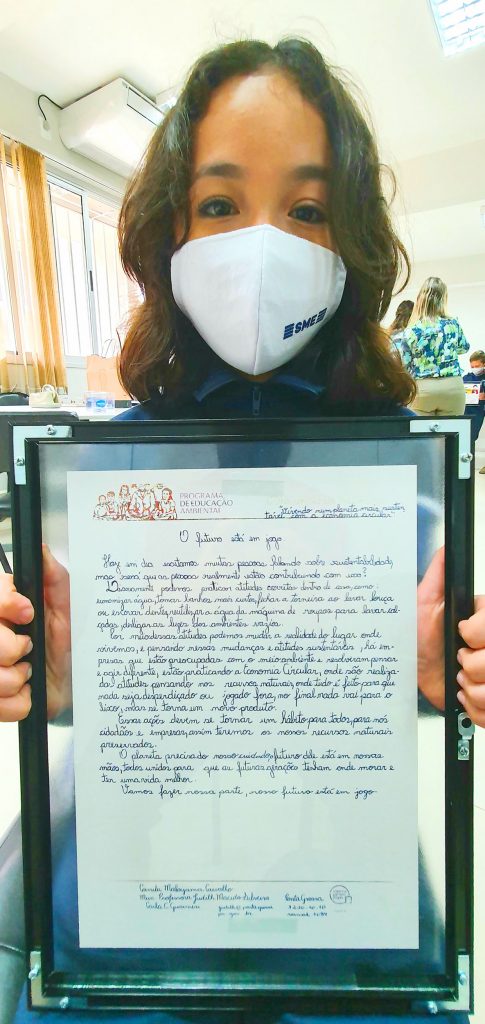 SME
PROGRAMA
DE EDUCAÇÃO
AMBIENTAL
"Vivendo num planeta mais susten
tável com a economia circular"
O futuro está em jogo
Hoje em dia escutamos muitas pessoas falando sobre sustentabilidade,
mas será que as pessoas realmente estão contribuindo com isso?
Diariamente podemos praticar atitudes corretas dentro de casa, como:
economizar água, tomar banhos mais curtos, fechar a torneira ao lavar louça
ou escovar dentes, reutilizar a água da máquina de roupas para lavar cal-
çadas, desligar as luzes dos ambientes vazios.
Por meio dessas atitudes podemos mudar a realidade do lugar onde
vivemos, e pensando nessas mudanças e atitudes sustentáveis, há em-
presas que estão preocupadas com o meio ambiente e resolveram pensar
e agir diferente, estão praticando a Economia Circular, onde são realiza-
das atitudes pensando nos recursos naturais, onde tudo é feito para que
nada seja desperdiçado ou jogado fora, no final nada vai para o
lixo, mas se torna um novo produto.
Essas ações devem se tornar um hábito para todos, para nós
cidadãos e empresas, assim teremos os nossos recursos naturais
preservados.
O planeta precisa do nosso cuidado, o futuro dele está em nossas
mãos, todos unidos para que as futuras gerações tenham onde morar e
ter uma vida melhor.
Vamos fazer nossa parte, nosso futuro está em jogo
Camila Carvalho
Professora Judith Macedo Silveira
Ponta Grossa